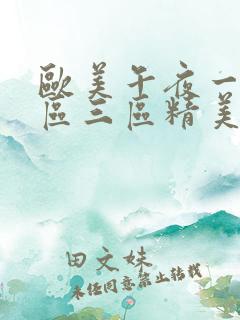 歐美午夜一
區三區精美
田文妹
未經同意禁止轉載